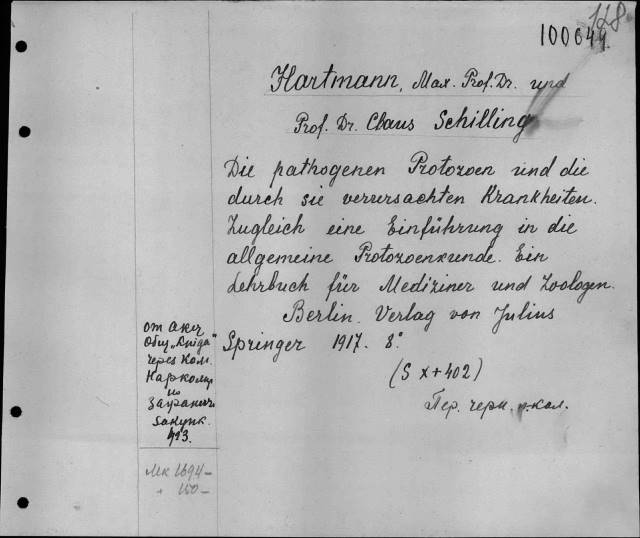 128
100649.
Hartmann, Max. Prof. Dr. und
Prof. Dr. Claus Schilling
Die pathogenen Protozoen und die
durch sie verursachten Krankheiten.
Zugleich eine Einführung in die
allgemeine Protozoenkunde. Ein
Lehrbuch für Mediziner und Zoologen.
Berlin. Verlag von Julius
Springer 1917. 8°.
(S X+402)
Пер. черн. р. кол.
от Акц
Общ. „Книга"
через Ком.
Наркомп
по
Заграничн
Закупк.
МК 1694-
+ 150-